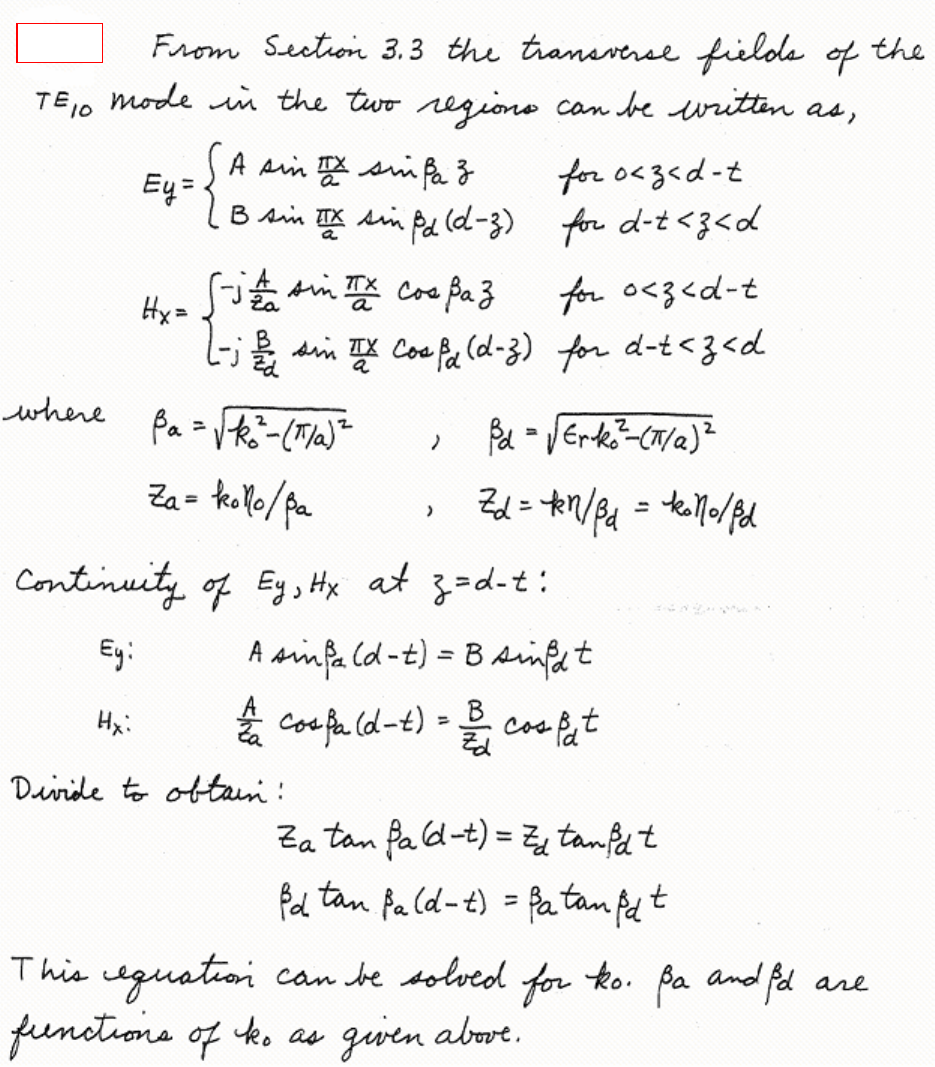 From Section 3.3 the transverse fields of the
TE₁₀ mode in the two regions can be written as,
Ey = { A sin πx/a sin βa z for 0<z<d-t
B sin πx/a sin βd (d-z) for d-t<z<d
Hx = { -j A/Za sin πx/a cos βa z for 0<z<d-t
-j B/Zd sin πx/a cos βd (d-z) for d-t<z<d
where βa = √(k₀²-(π/a)²) , βd = √(εr k₀²-(π/a)²)
Za = k₀η₀/βa , Zd = kη/βd = k₀η₀/βd
Continuity of Ey, Hx at z=d-t:
Ey: A sin βa (d-t) = B sin βd t
Hx: A/Za cos βa (d-t) = B/Zd cos βd t
Divide to obtain:
Za tan βa (d-t) = Zd tan βd t
βd tan βa (d-t) = βa tan βd t
This equation can be solved for k₀. βa and βd are
functions of k₀ as given above.